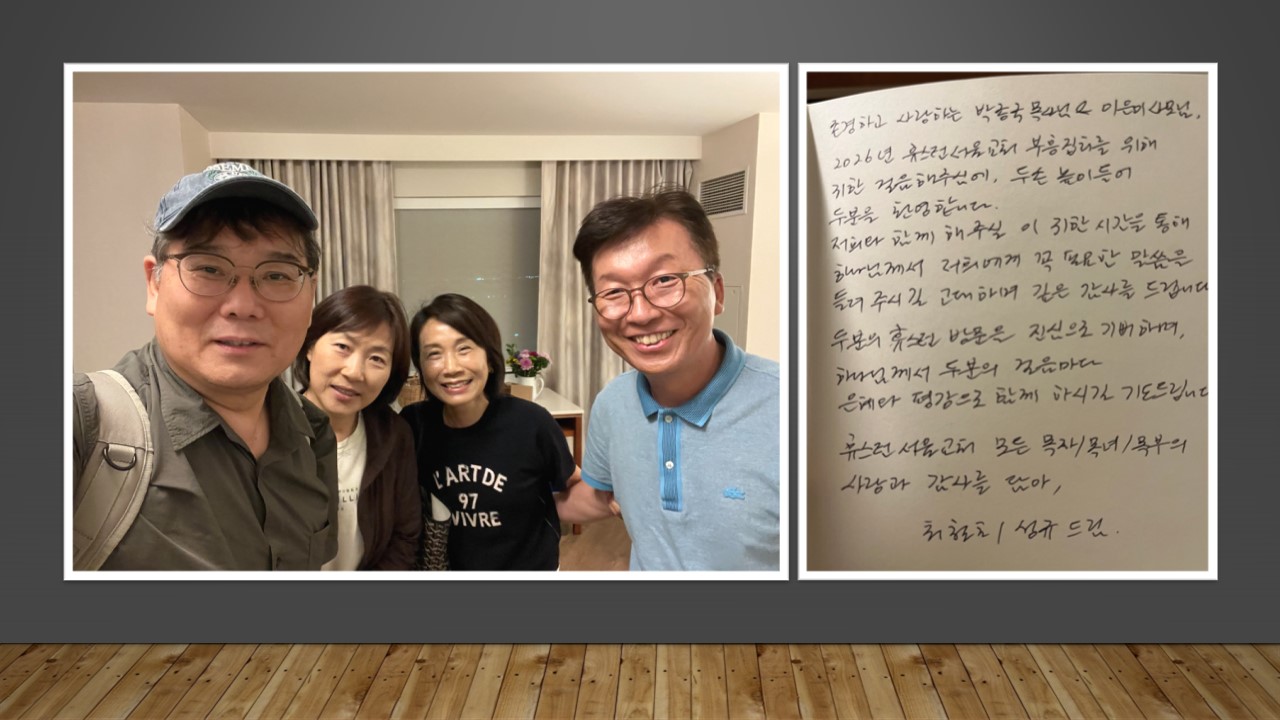 L'ART DE
97
VIVRE
존경하고 사랑하는 박종국 목사님 & 이은미 사모님,
2026년 휴스턴서울교회 부흥집회를 위해
귀한 걸음해주심에, 두손 높이들어
두분을 환영합니다.
저희와 함께 해주실 이 귀한 시간을 통해
하나님께서 저희에게 꼭 필요한 말씀을
들려 주시길 고대하며 깊은 감사를 드립니다
두분의 휴스턴 방문을 진심으로 기뻐하며,
하나님께서 두분의 걸음마다
은혜와 평강으로 함께 하시길 기도드립니다
휴스턴 서울교회 모든 목자/목녀/목부의
사랑과 감사를 담아,
성규 드림.